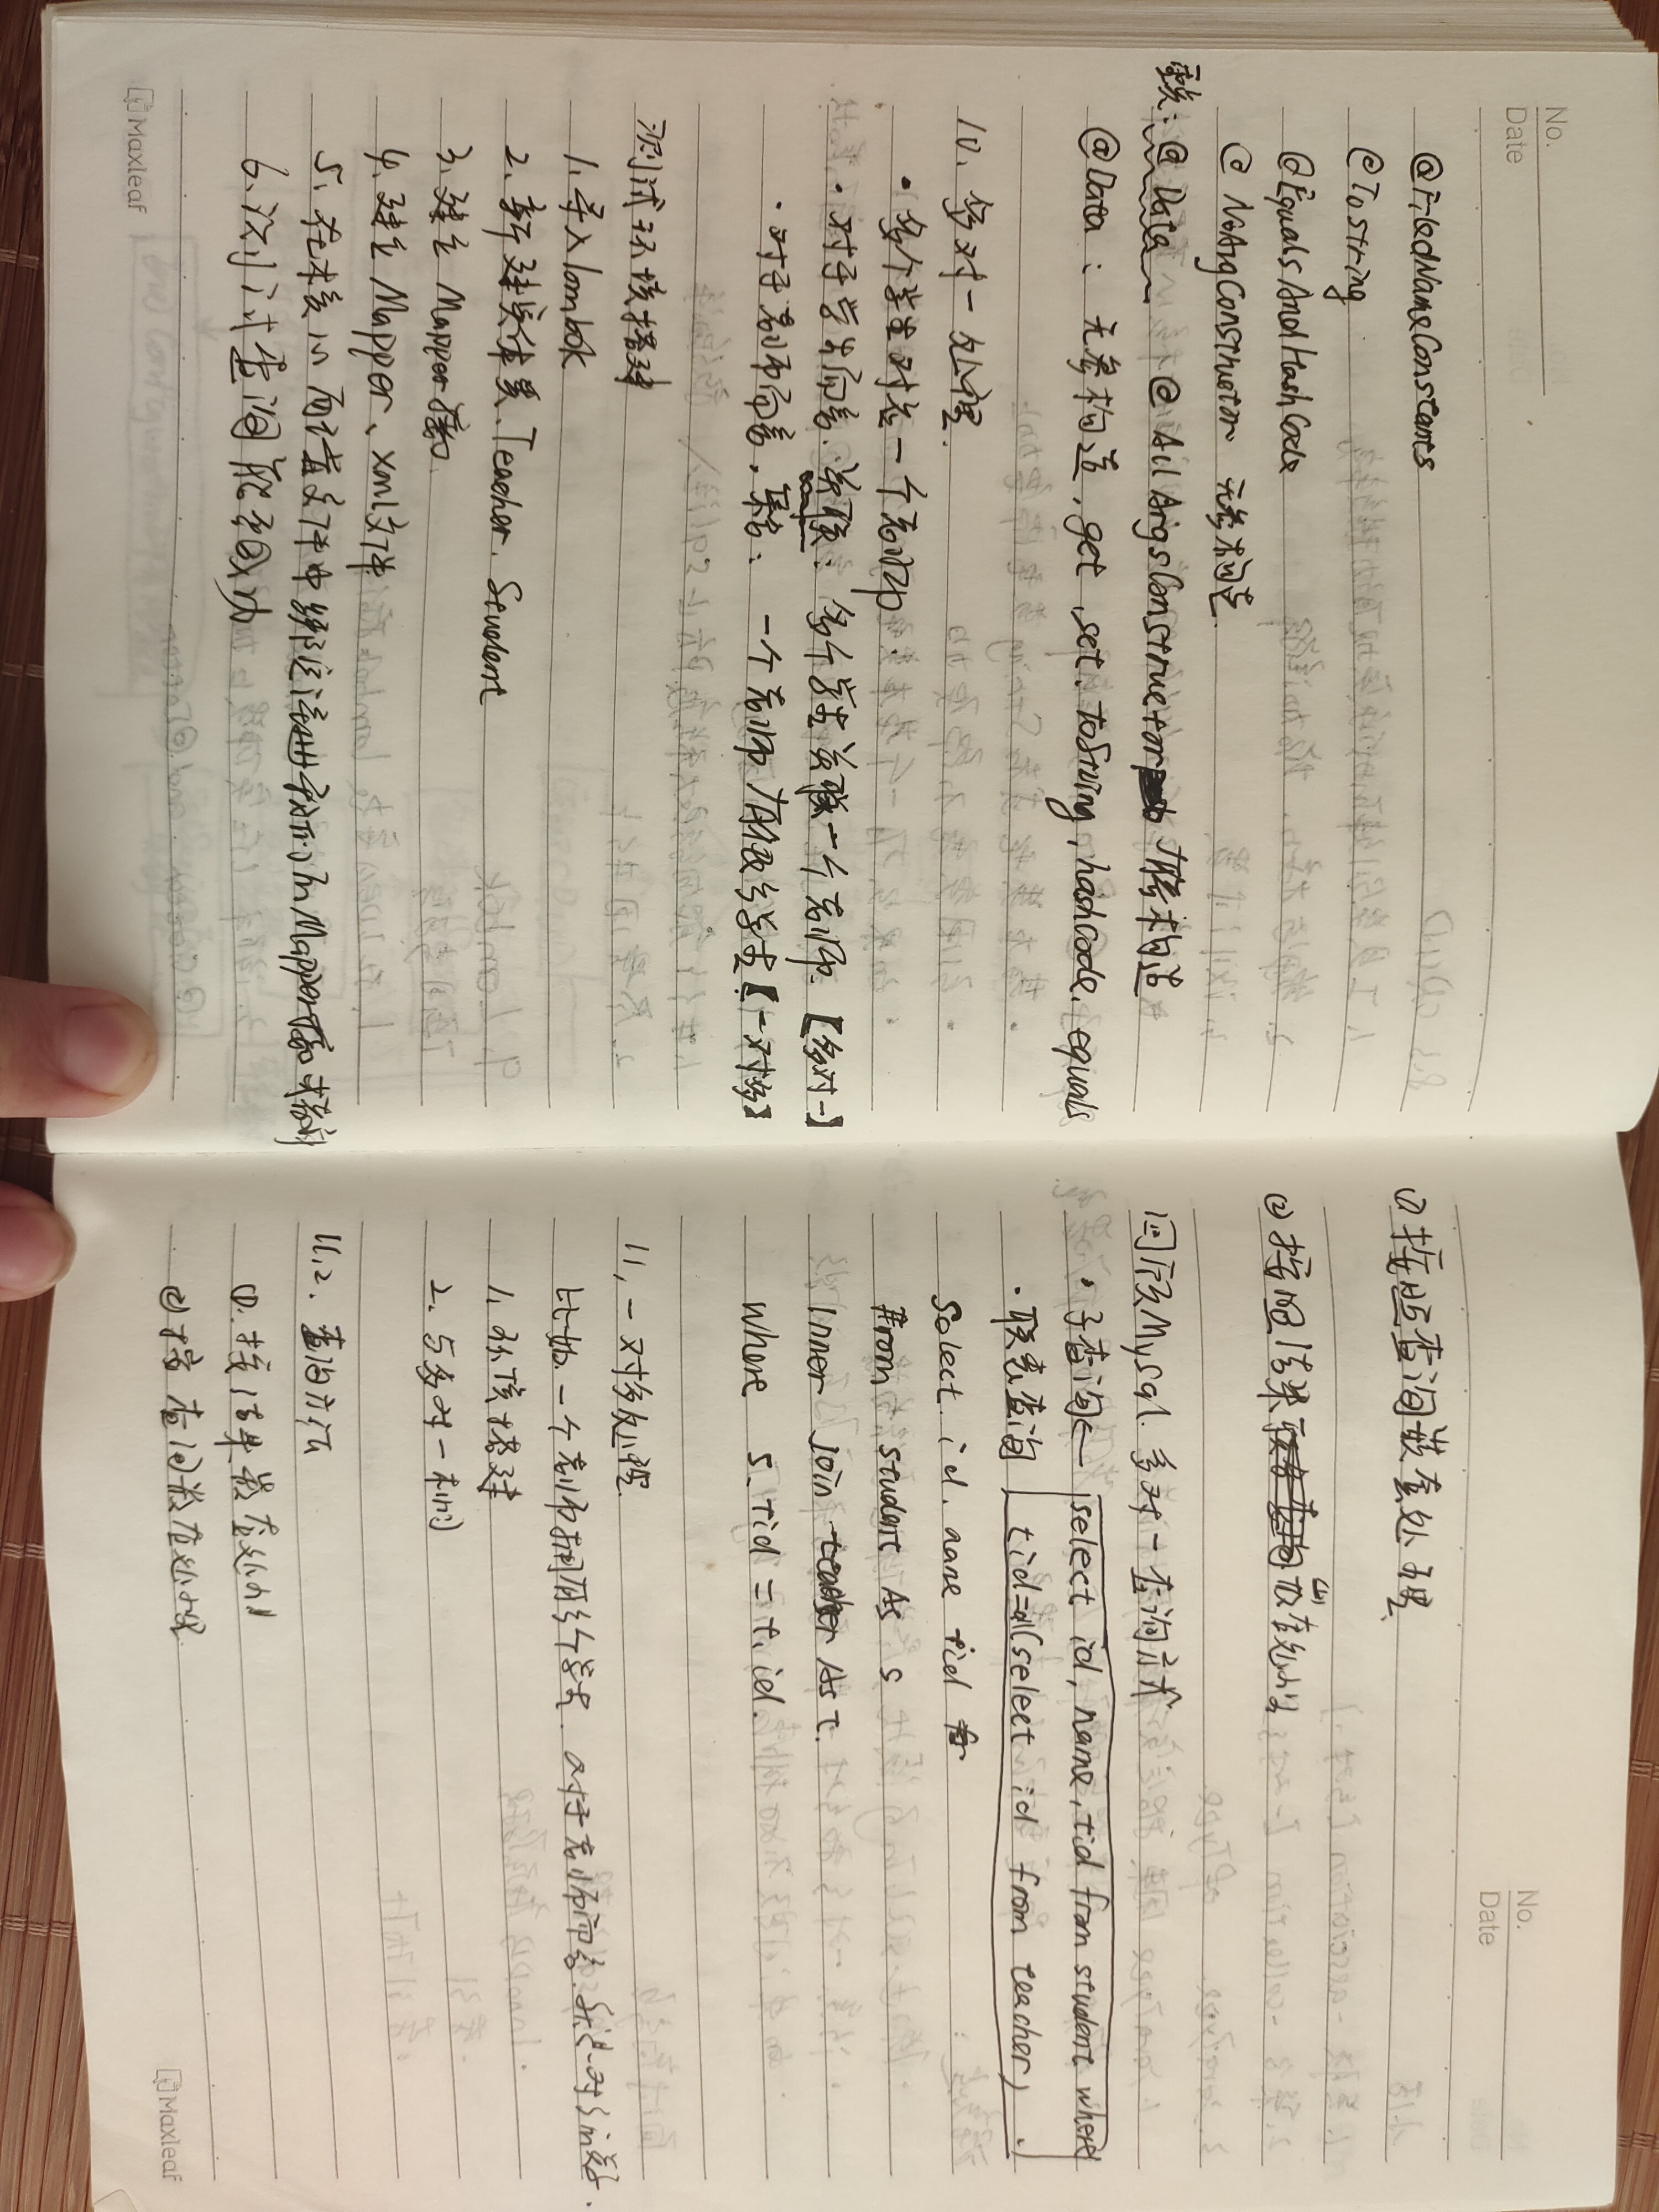 No.
Date
@FiledNameConstants
@ToString
@EqualsAndHashCode
@NoArgConstructor 无参构造.
@Data @AllArgsConstructor 有参构造
@Data: 无参构造, get, set, toString, hashCode, equals
10. 多对一处理.
· 多个学生对应一个老师.
· 对于学生而言. 关联: 多个学生关联一个老师. 【多对一】
· 对于老师而言, 集合: 一个老师有很多学生【一对多】
测试环境搭建
1. 导入lombok
2. 新建实体类. Teacher. Student
3. 建立 Mapper接口
4. 建立 Mapper、xml文件
5. 在核心配置文件中绑定注册我们的Mapper接口或者
6. 测试查询能否成功
Maxleaf
No.
Date
(1) 按照查询嵌套处理.
(2) 按照结果嵌套处理
回顾MySql. 多对一查询方式
· 子查询← select id, name, tid from student where
· 联表查询 tid=all(select id from teacher)
select id, name tid
from student As s
inner join teacher As T.
where s.tid = t.id.
11, 一对多处理.
比如. 一个老师拥有多个学生. 对于老师而言. 就是一对多的关系.
1. 环境搭建
2. 与多对一相同
11.2. 查询方法
①. 按结果嵌套处理
② 按查询嵌套处理
Maxleaf